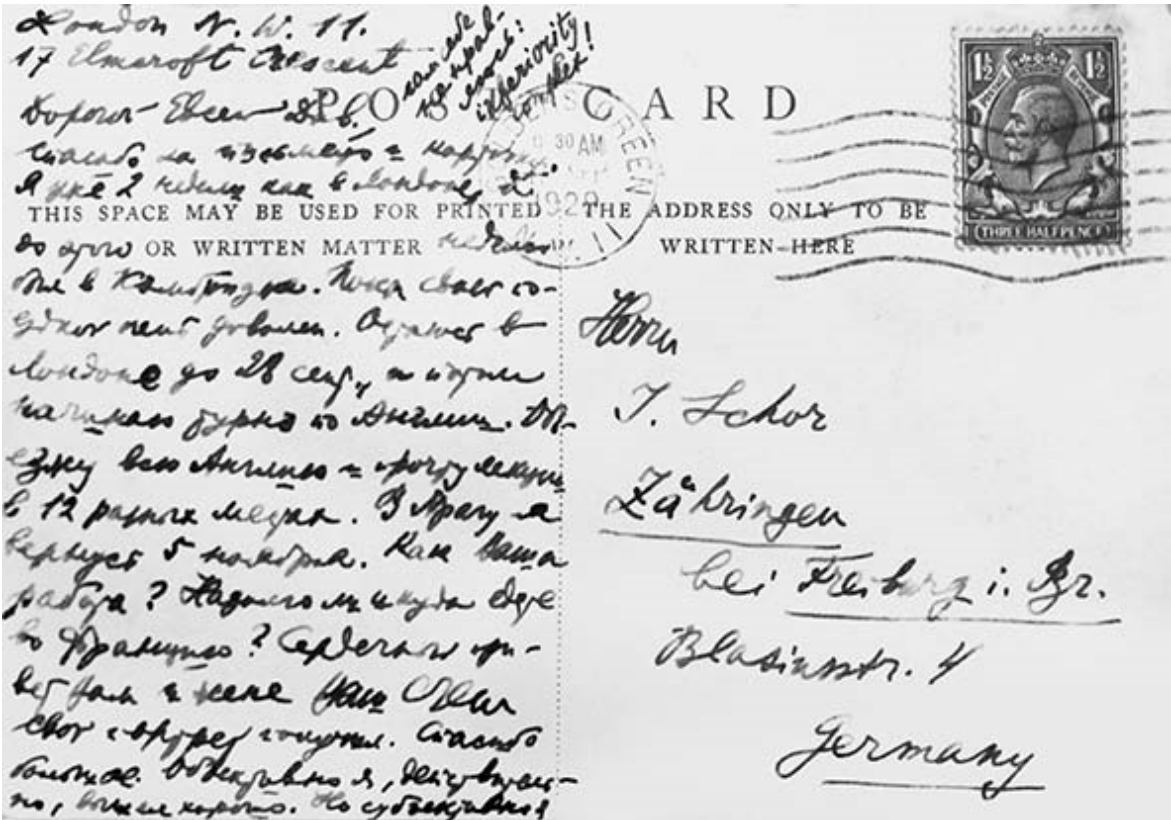 London N. W. 11.
17 Elmcroft Crescent
Дорогой Евсей Д.в.
спасибо за письмецо и карточку.
Я уже 2 недели как в Лондоне, а
до этого неделю
был в Кембридже. Пока своей по-
ездкой очень доволен. Остаюсь в
Лондоне до 28 сент., а потом
начинаю турнэ по Англии. Объ-
езжу всю Англию и прочту лекции
в 12 разных местах. В Прагу я
вернусь 5 ноября. Как Ваша
работа? Надолго ли и куда едете
во Францию? Сердечный при-
вет Вам и жене Ваш
свой портрет получил. Спасибо
большое. Объективно я, действитель-
но, вышел хорошо. Но субъективно я
сам себе
не нрав-
люсь:
inferiority
complex!
POST CARD
THIS SPACE MAY BE USED FOR PRINTED
OR WRITTEN MATTER
THE ADDRESS ONLY TO BE
WRITTEN HERE
GREEN
30 AM
192
N.W. 11
1½ 1½
POSTAGE REVENUE
THREE HALFPENCE
Herrn
J. Schor
Zähringen
bei Freiburg i. Br.
Blasiusstr. 4
Germany